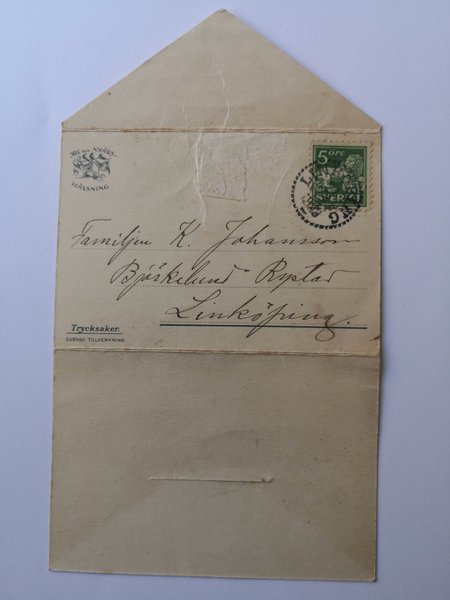 JUL- och NYÅRS-
HÄLSNING
5 ÖRE
SVERIGE
Familjen K. Johansson
Björkelund Rystad
Linköping.
Trycksaker.
SVENSK TILLVERKNING